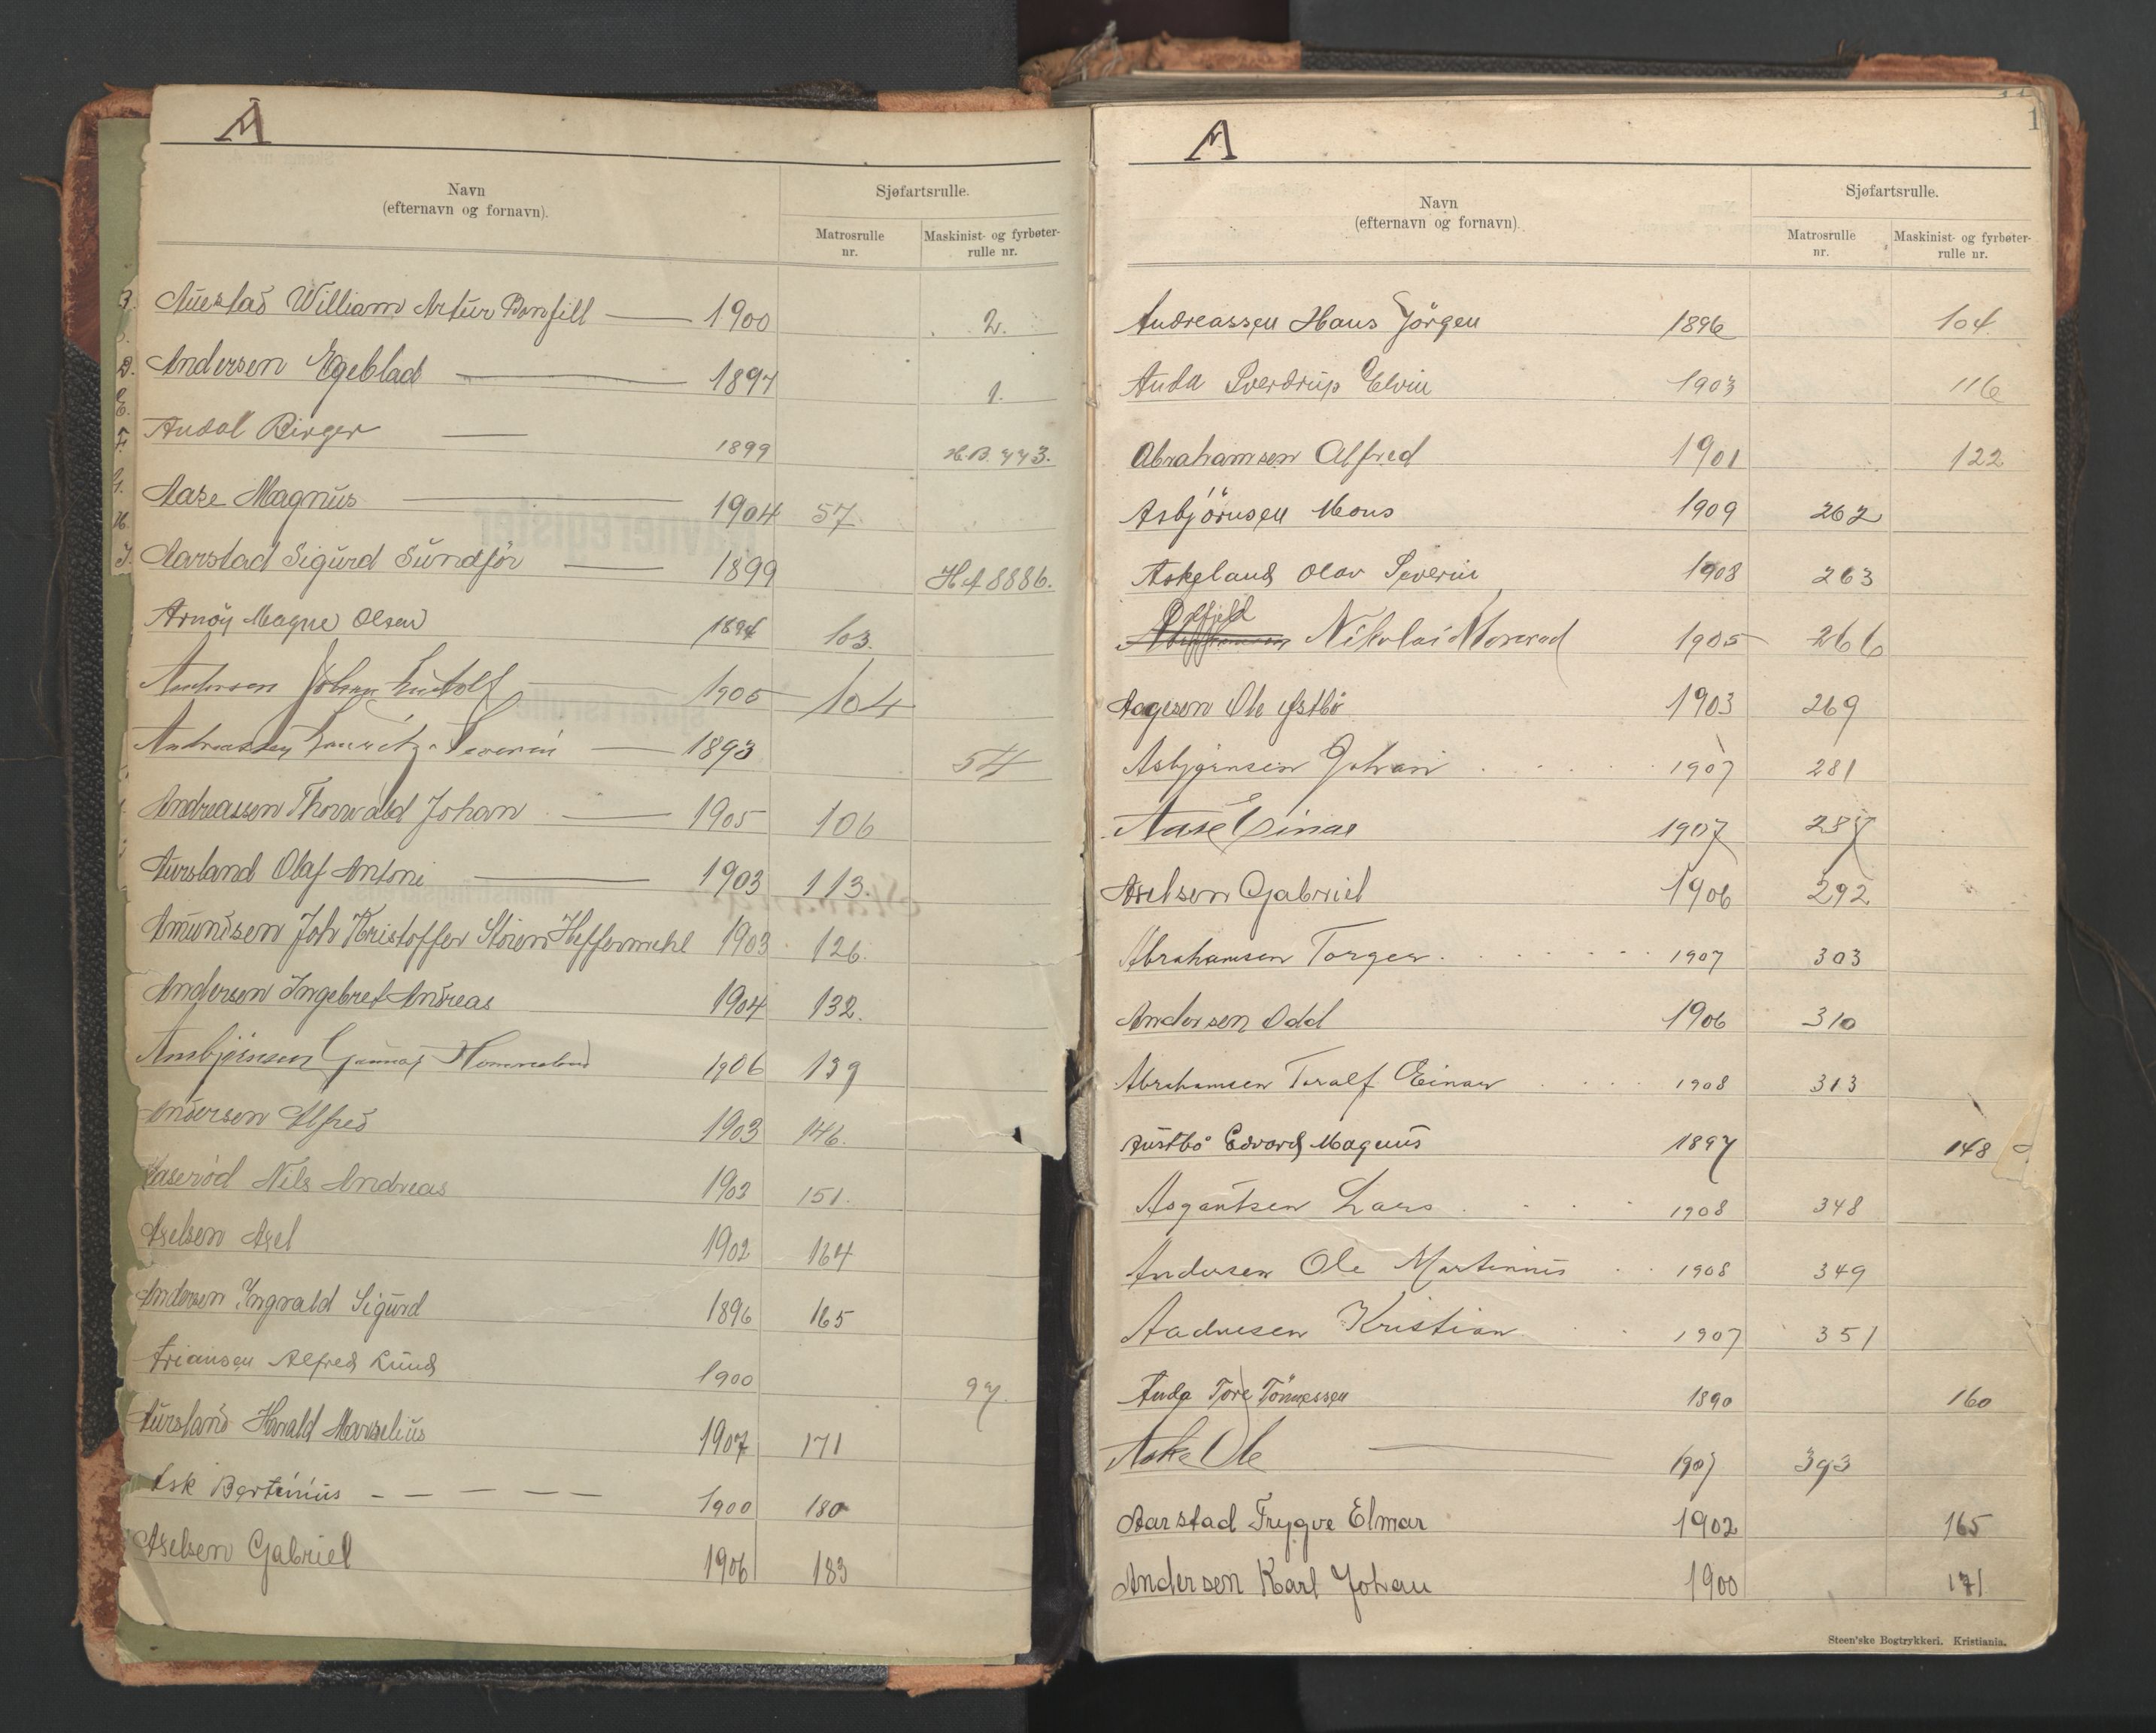 A
Navn
(efternavn og fornavn).
Sjøfartsrulle.
Matrosrulle
nr.
Maskinist- og fyrbøter-
rulle nr.
Auestad William Artur Bonfill — 1900 2.
Andersen Egeblad — 1897 1.
Audal Birger — 1899 H.B. 773.
Aase Magnus — 1904 57
Aarstad Sigurd Sundför — 1899 H A 8886.
Arnöy Magne Olsen 1894 103.
Andersen Johan Ludolf — 1905 104
Andreassen Lauritz Severin — 1893 54
Andreassen Thorvald Johan — 1905 106
Aursland Olaf Antoni — 1903 113.
Amundsen Joh Kristoffer Stören Heffermehl 1903 126.
Andersen Ingebret Andreas 1904 132.
Ansbjörnsen Gunnar Hommeland 1906 139
Andersen Alfred 1903 146.
Aaseröd Nils Andreas 1903 151.
Axelsen Axel 1902 164
Andersen Yngvald Sigurd 1896 165
Ariansen Alfred Lund 1900 97.
Aursland Harald Marselius 1907 171
Ask Bertinius — — — — — 1900 180
Axelsen Gabriel 1906 183
1
A
Navn
(efternavn og fornavn).
Sjøfartsrulle.
Matrosrulle
nr.
Maskinist- og fyrbøter-
rulle nr.
Andreassen Hans Jörgen 1896 104.
Auda Sverdrup Elvin 1903 116
Abrahamsen Alfred 1901 122
Asbjörnsen Mons 1909 262
Askeland Olav Severin 1908 263
Nikolai Monrad 1905 266
Aagesen Ole Østbö 1903 269
Asbjørnsen Johan . . . . . 1907 281
Aase Einar 1907 287
Axelsen Gabriel 1906 292
Abrahamsen Torger . . . . . . 1907 303
Andersen Odd 1906 310
Abrahamsen Toralf Einar . . . . 1908 313
Austbö Edvard Magnus 1897 148
Asgautsen Lars . . . . 1908 348
Andersen Ole Martinius . . 1908 349
Aadnesen Kristian . . 1907 351
Auda Tore Tönnessen 1890 160
Aske Ole — 1907 393
Aarstad Trygve Elmar 1902 165
Andersen Karl Johan 1900 171
Steen'ske Bogtrykkeri. Kristiania.